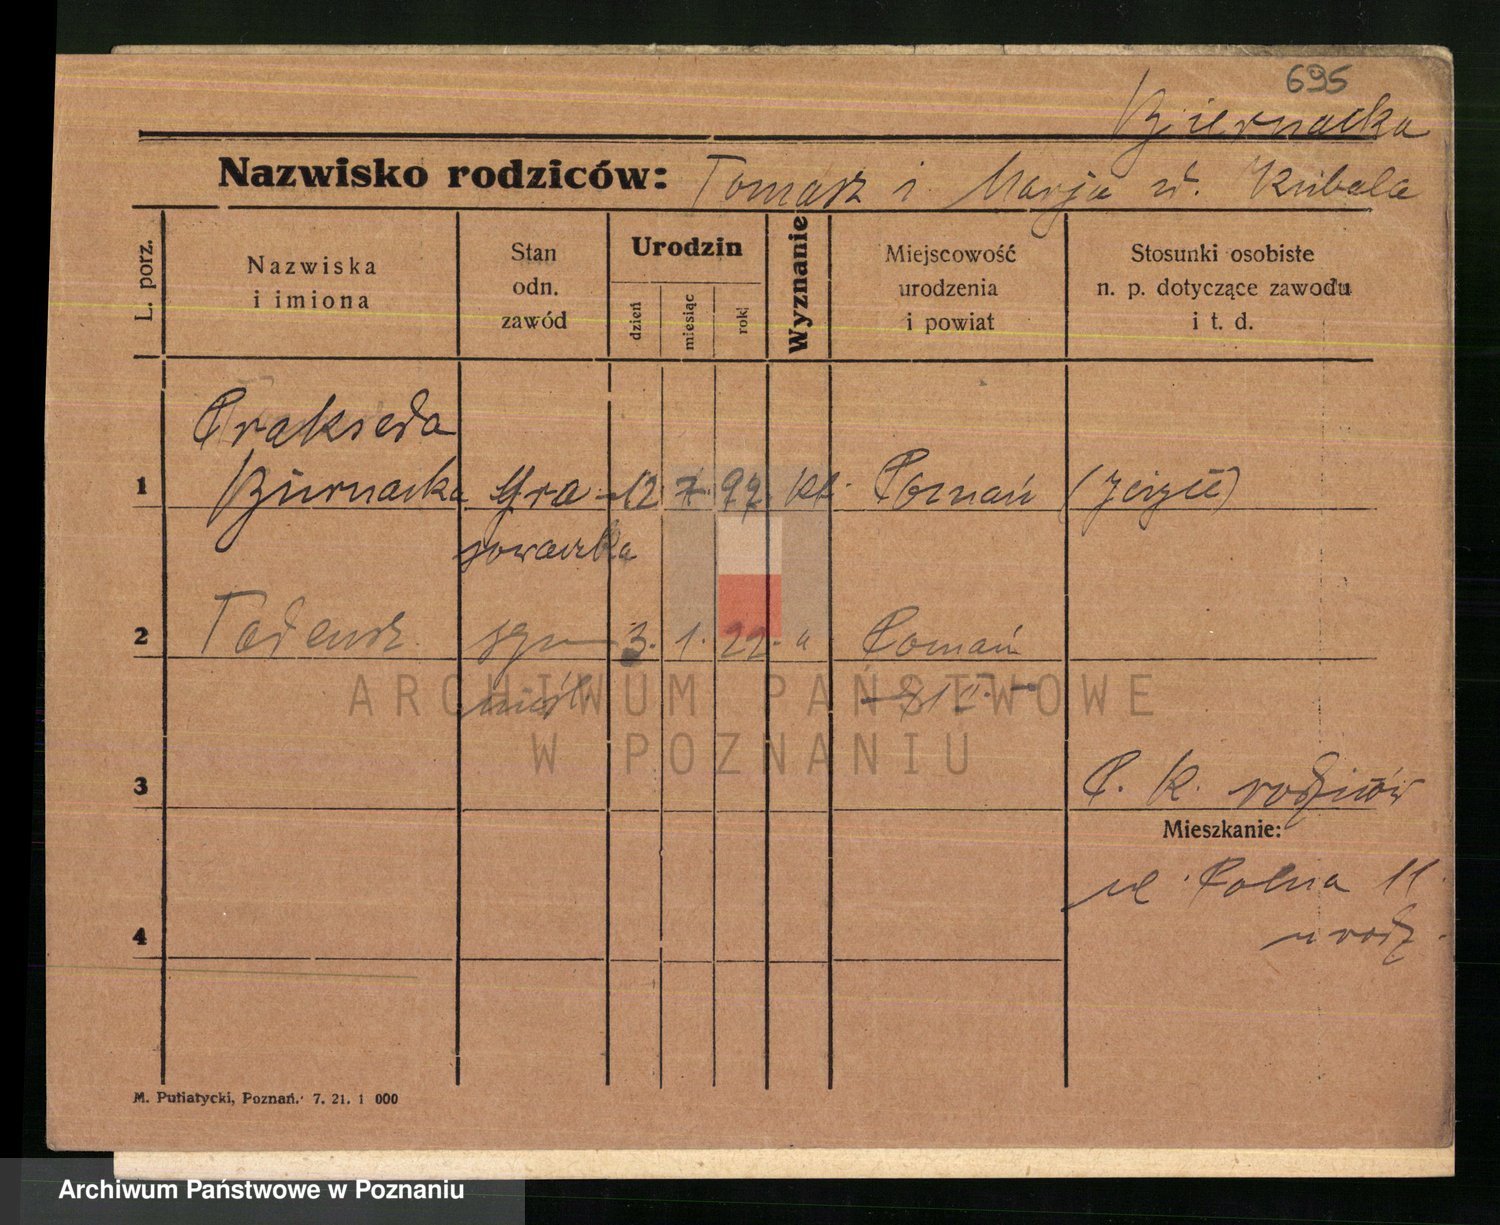 695
Biernacka
Nazwisko rodziców: Tomasz i Marja u. Kubala
L. porz.
Nazwiska
i imiona
Stan
odn.
zawód
Urodzin
dzień
miesiąc
rok
Wyznanie
Miejscowość
urodzenia
i powiat
Stosunki osobiste
n. p. dotyczące zawodu
i t. d.
Prakseda
1 Biernacka 12 7. 97. kt. Poznań (Jeżyce)
2 Tadeusz syn 3. 1. 22. " Poznań
nieśl.
ARCHIWUM PAŃSTWOWE
W POZNANIU
3 P. K. rodziców
Mieszkanie:
ul. Polna 11.
4 u rodz.
M. Putiatycki, Poznań. 7. 21. 1 000
Archiwum Państwowe w Poznaniu